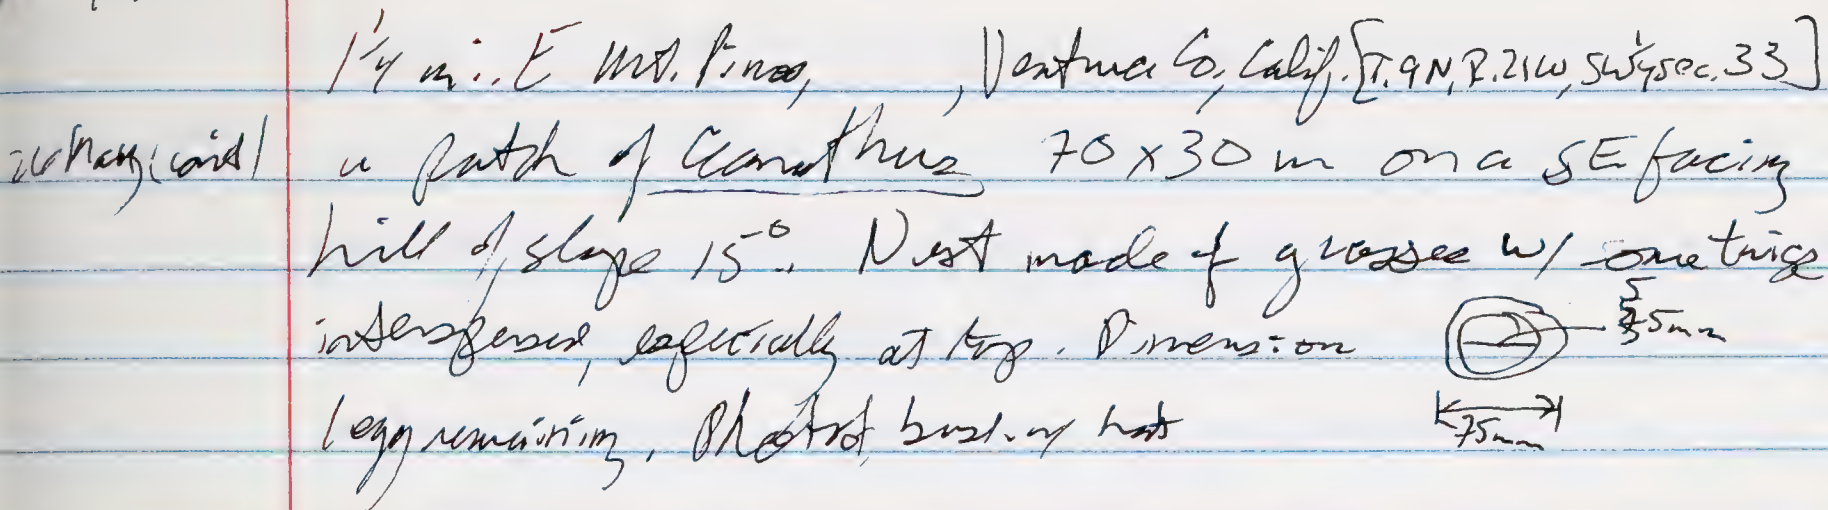 1¼ mi. E Mt. Pinos, , Ventura Co, Calif. [T.9N, R.21W, SW¼ sec. 33]
26 May (cont) a patch of Ceanothus 70 x 30 m on a SE facing
hill of slope 15°. Nest made of grasses w/ some twigs
interspersed, especially at top. Dimension 55mm
1 egg remaining. Photo of bush w/ hat 75mm